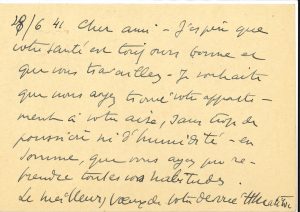 28/6 41. Cher ami - J'espère que
votre santé est toujours bonne et
que vous travaillez - Je souhaite
que vous ayez trouvé votre apparte-
ment à votre aise, sans trop de
poussière ni d'humidité - en
somme, que vous ayez pu re-
prendre toutes vos habitudes.
Le meilleurs vœux de votre dévoué HMatisse